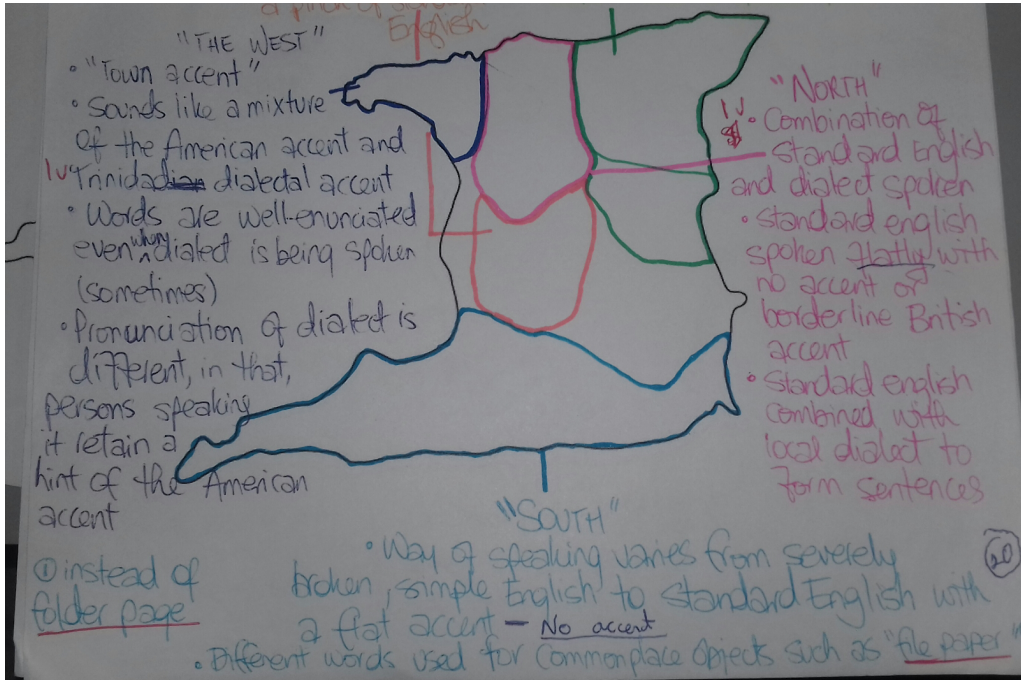 English
"THE WEST"
• "Town accent"
• Sounds like a mixture
of the American accent and
Trinidad dialectal accent
• Words are well-enunciated
even when dialect is being spoken
(sometimes)
• Pronunciation of dialect is
different, in that,
persons speaking
it retain a
hint of the American
accent
"NORTH"
• Combination of
Standard English
and dialect spoken
• Standard english
spoken flatly with
no accent or
borderline British
accent
• Standard english
combined with
local dialect to
form sentences
"SOUTH"
• Way of speaking varies from severely
broken, simple English to standard English with
a flat accent – No accent
• Different words used for commonplace objects such as "file paper"
① instead of
folder page
20